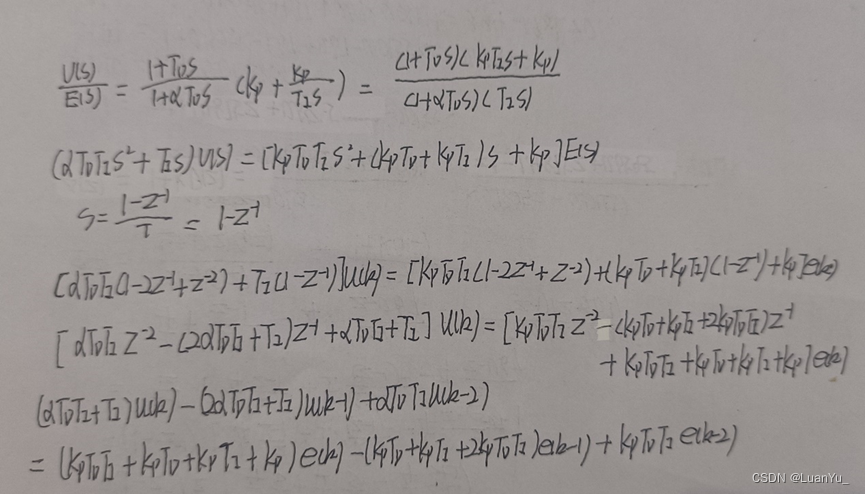 U(S)/E(S) = (1+T_D S)/(1+αT_D S) (K_P + K_P/(T_2 S)) = ((1+T_D S)(K_P T_2 S + K_P))/((1+αT_D S)(T_2 S))
(αT_D T_2 S² + T_2 S) U(S) = [K_P T_D T_2 S² + (K_P T_D + K_P T_2) S + K_P] E(S)
S = (1-Z⁻¹)/T = 1-Z⁻¹
[αT_D T_2 (1-2Z⁻¹+Z⁻²) + T_2 (1-Z⁻¹)] U(k) = [K_P T_D T_2 (1-2Z⁻¹+Z⁻²) + (K_P T_D + K_P T_2)(1-Z⁻¹) + K_P] e(k)
[αT_D T_2 Z⁻² - (2αT_D T_2 + T_2) Z⁻¹ + αT_D T_2 + T_2] U(k) = [K_P T_D T_2 Z⁻² - (K_P T_D + K_P T_2 + 2K_P T_D T_2) Z⁻¹
+ K_P T_D T_2 + K_P T_D + K_P T_2 + K_P] e(k)
(αT_D T_2 + T_2) U(k) - (2αT_D T_2 + T_2) U(k-1) + αT_D T_2 U(k-2)
= (K_P T_D T_2 + K_P T_D + K_P T_2 + K_P) e(k) - (K_P T_D + K_P T_2 + 2K_P T_D T_2) e(k-1) + K_P T_D T_2 e(k-2)
CSDN @LuanYu_